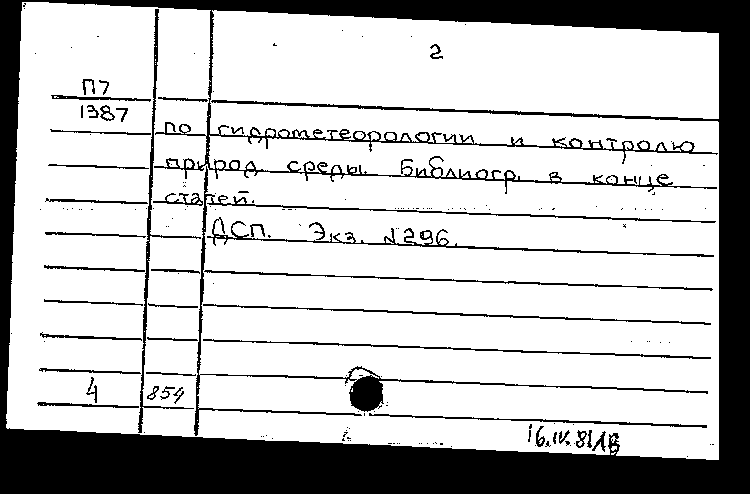 2
П7
1387
по гидрометеорологии и контролю
природ. среды. Библиогр. в конце
статей.
ДСП. Экз. №296.
4 854
16.IV.81